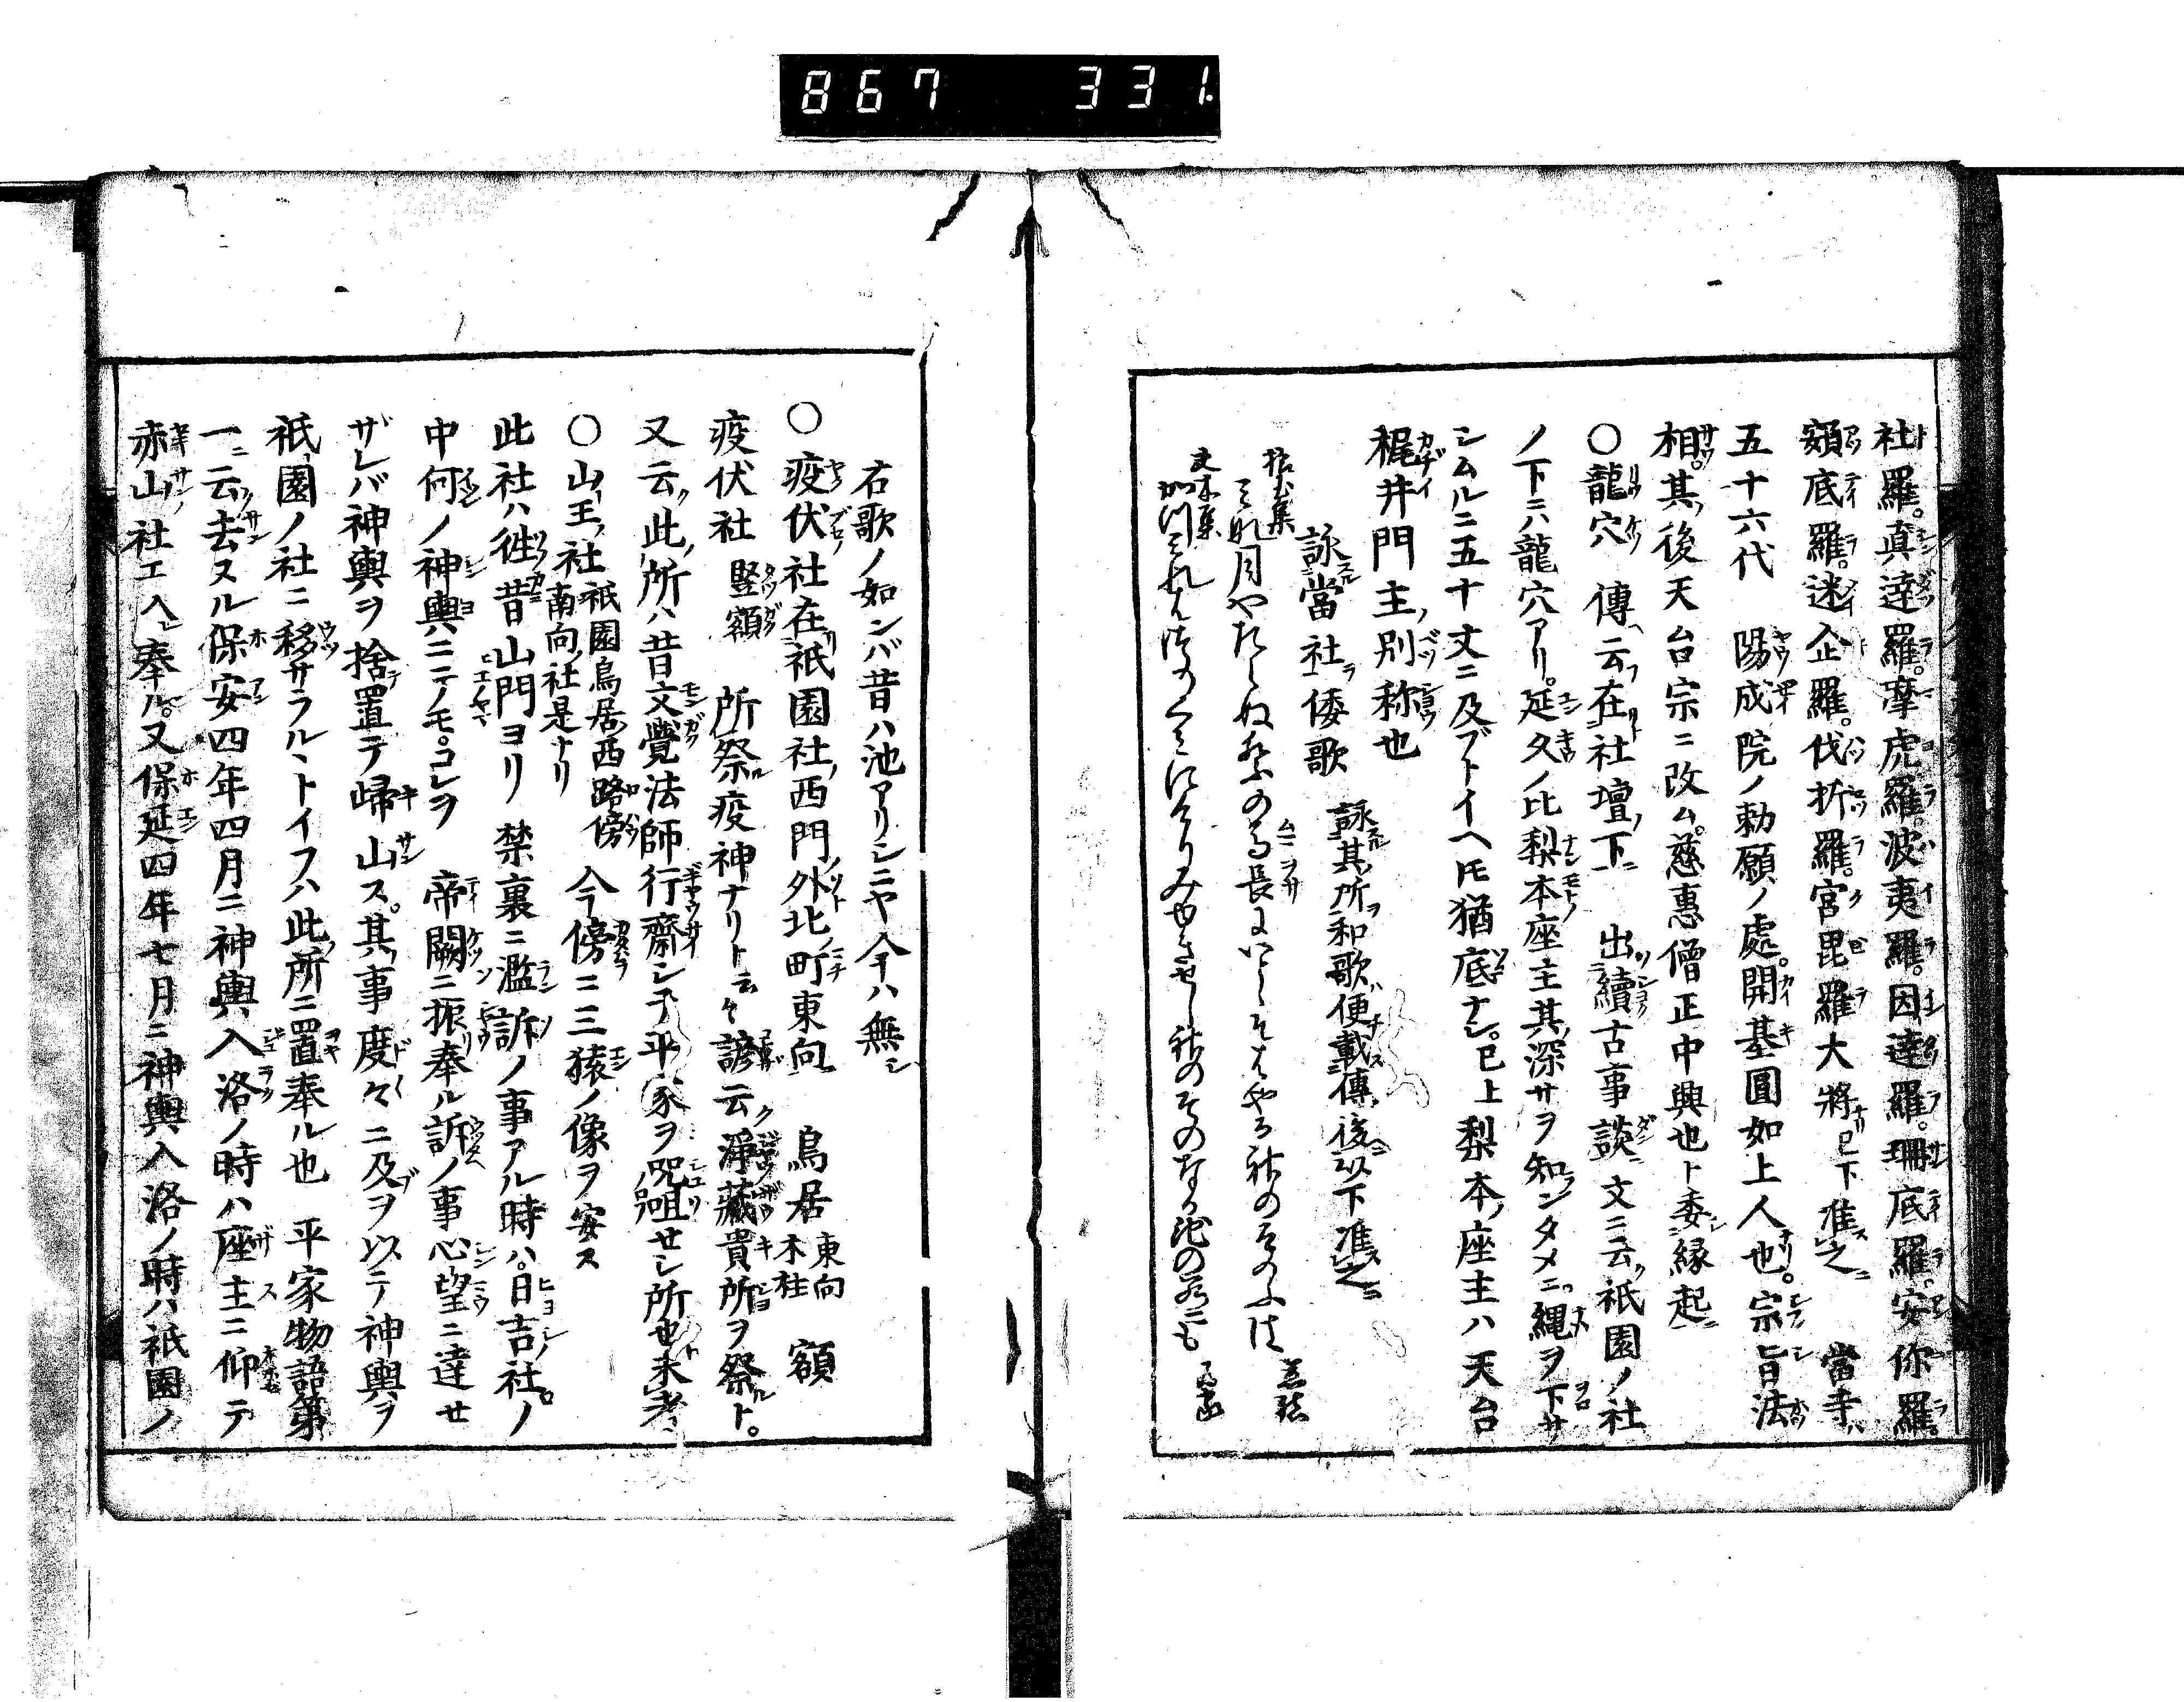 867 331
社羅。真達羅。摩虎羅。波夷羅。因達羅。珊底羅。安你羅。
頞底羅。迷企羅。伐折羅。宮毘羅大將 已下准之 當寺ハ
五十六代 陽成院ノ勅願ノ處。開基圓如上人也。宗旨法
相。其後天台宗ニ改ム。慈惠僧正中興也ト委縁起ニ
〇龍穴 傳云在社壇下 出續古事談 文ニ云祇園ノ社
ノ下ニハ龍穴アリ。延久ノ比梨本座主其深サヲ知ンタメニ縄ヲ下サ
シムルニ五十丈ニ及ブトイヘ𪜈猶底ナシ。已上 梨本座主ハ天台
梶井門主ノ別称也
詠當社倭歌 詠其所和歌便載傳後以下准之
右歌ノ如ンバ昔ハ池アリシニヤ今ハ無シ
〇疫伏社 在祇園社西門外北町東向 鳥居 東向木柱 額
疫伏社 竪額 所祭疫神ナリト云々 諺云淨藏貴所ヲ祭ルト。
又云此所ハ昔文覺法師行齋シテ平家ヲ咒詛セシ所也ト未考
〇山王社 祇園鳥居西路傍南向社是ナリ 今傍ニ三猿ノ像ヲ安ス
此社ハ徃昔山門ヨリ 禁裏ニ濫訴ノ事アル時ハ。日吉社ノ
中何ノ神輿ニテノモ。コレヲ 帝闕ニ振奉ル訴ノ事心望ニ達せ
ザレバ神輿ヲ捨置テ歸山ス。其事度々ニ及ヲ以テ神輿ヲ
祇園ノ社ニ移サラルヽトイフハ此所ニ置奉ル也 平家物語第
一ニ云去ヌル保安四年四月ニ神輿入洛ノ時ハ座主ニ仰テ
赤山ノ社エ入奉ル。又保延四年七月ニ神輿入洛ノ時ハ祇園ノ